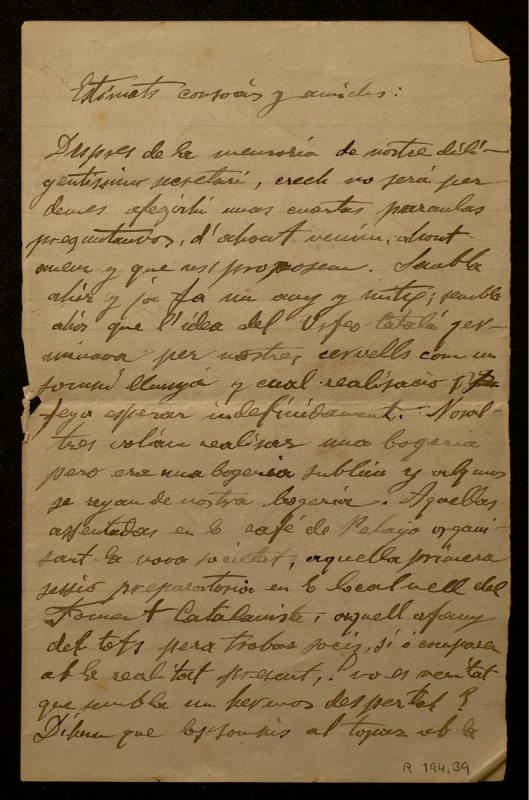 Estimats consocis y amichs:
Despres de la memoria de nostre dili-
gentíssim secretari, crech no será per
demes afegirhi unas cuantas paraulas
preguntanvos, d'ahont venim, ahont
anem y que ns proposem. Sembla
ahir y ja fa un any y mitg; sembla
ahir que l'idea del Orfeo Catalá ger-
minava per nostres cervells com un
somni llunyá y cual realisació
feya esperar indefinidament. Nosal-
tres volíam realisar una bogeria
pero era una bogeria sublim y alguns
se reyan de nostra bogeria. Aquellas
assentadas en lo café de Pelayo organi-
sant la nova societat; aquella primera
sessió preparatoria en lo local vell del
Foment Catalanista; aquell afany
del tots pera trobar socis, si ó comparem
ab la realitat present, ¿no es veritat
que sembla un hermos despertar?
Dihuen que los somnis al topar ab la
R 194,39